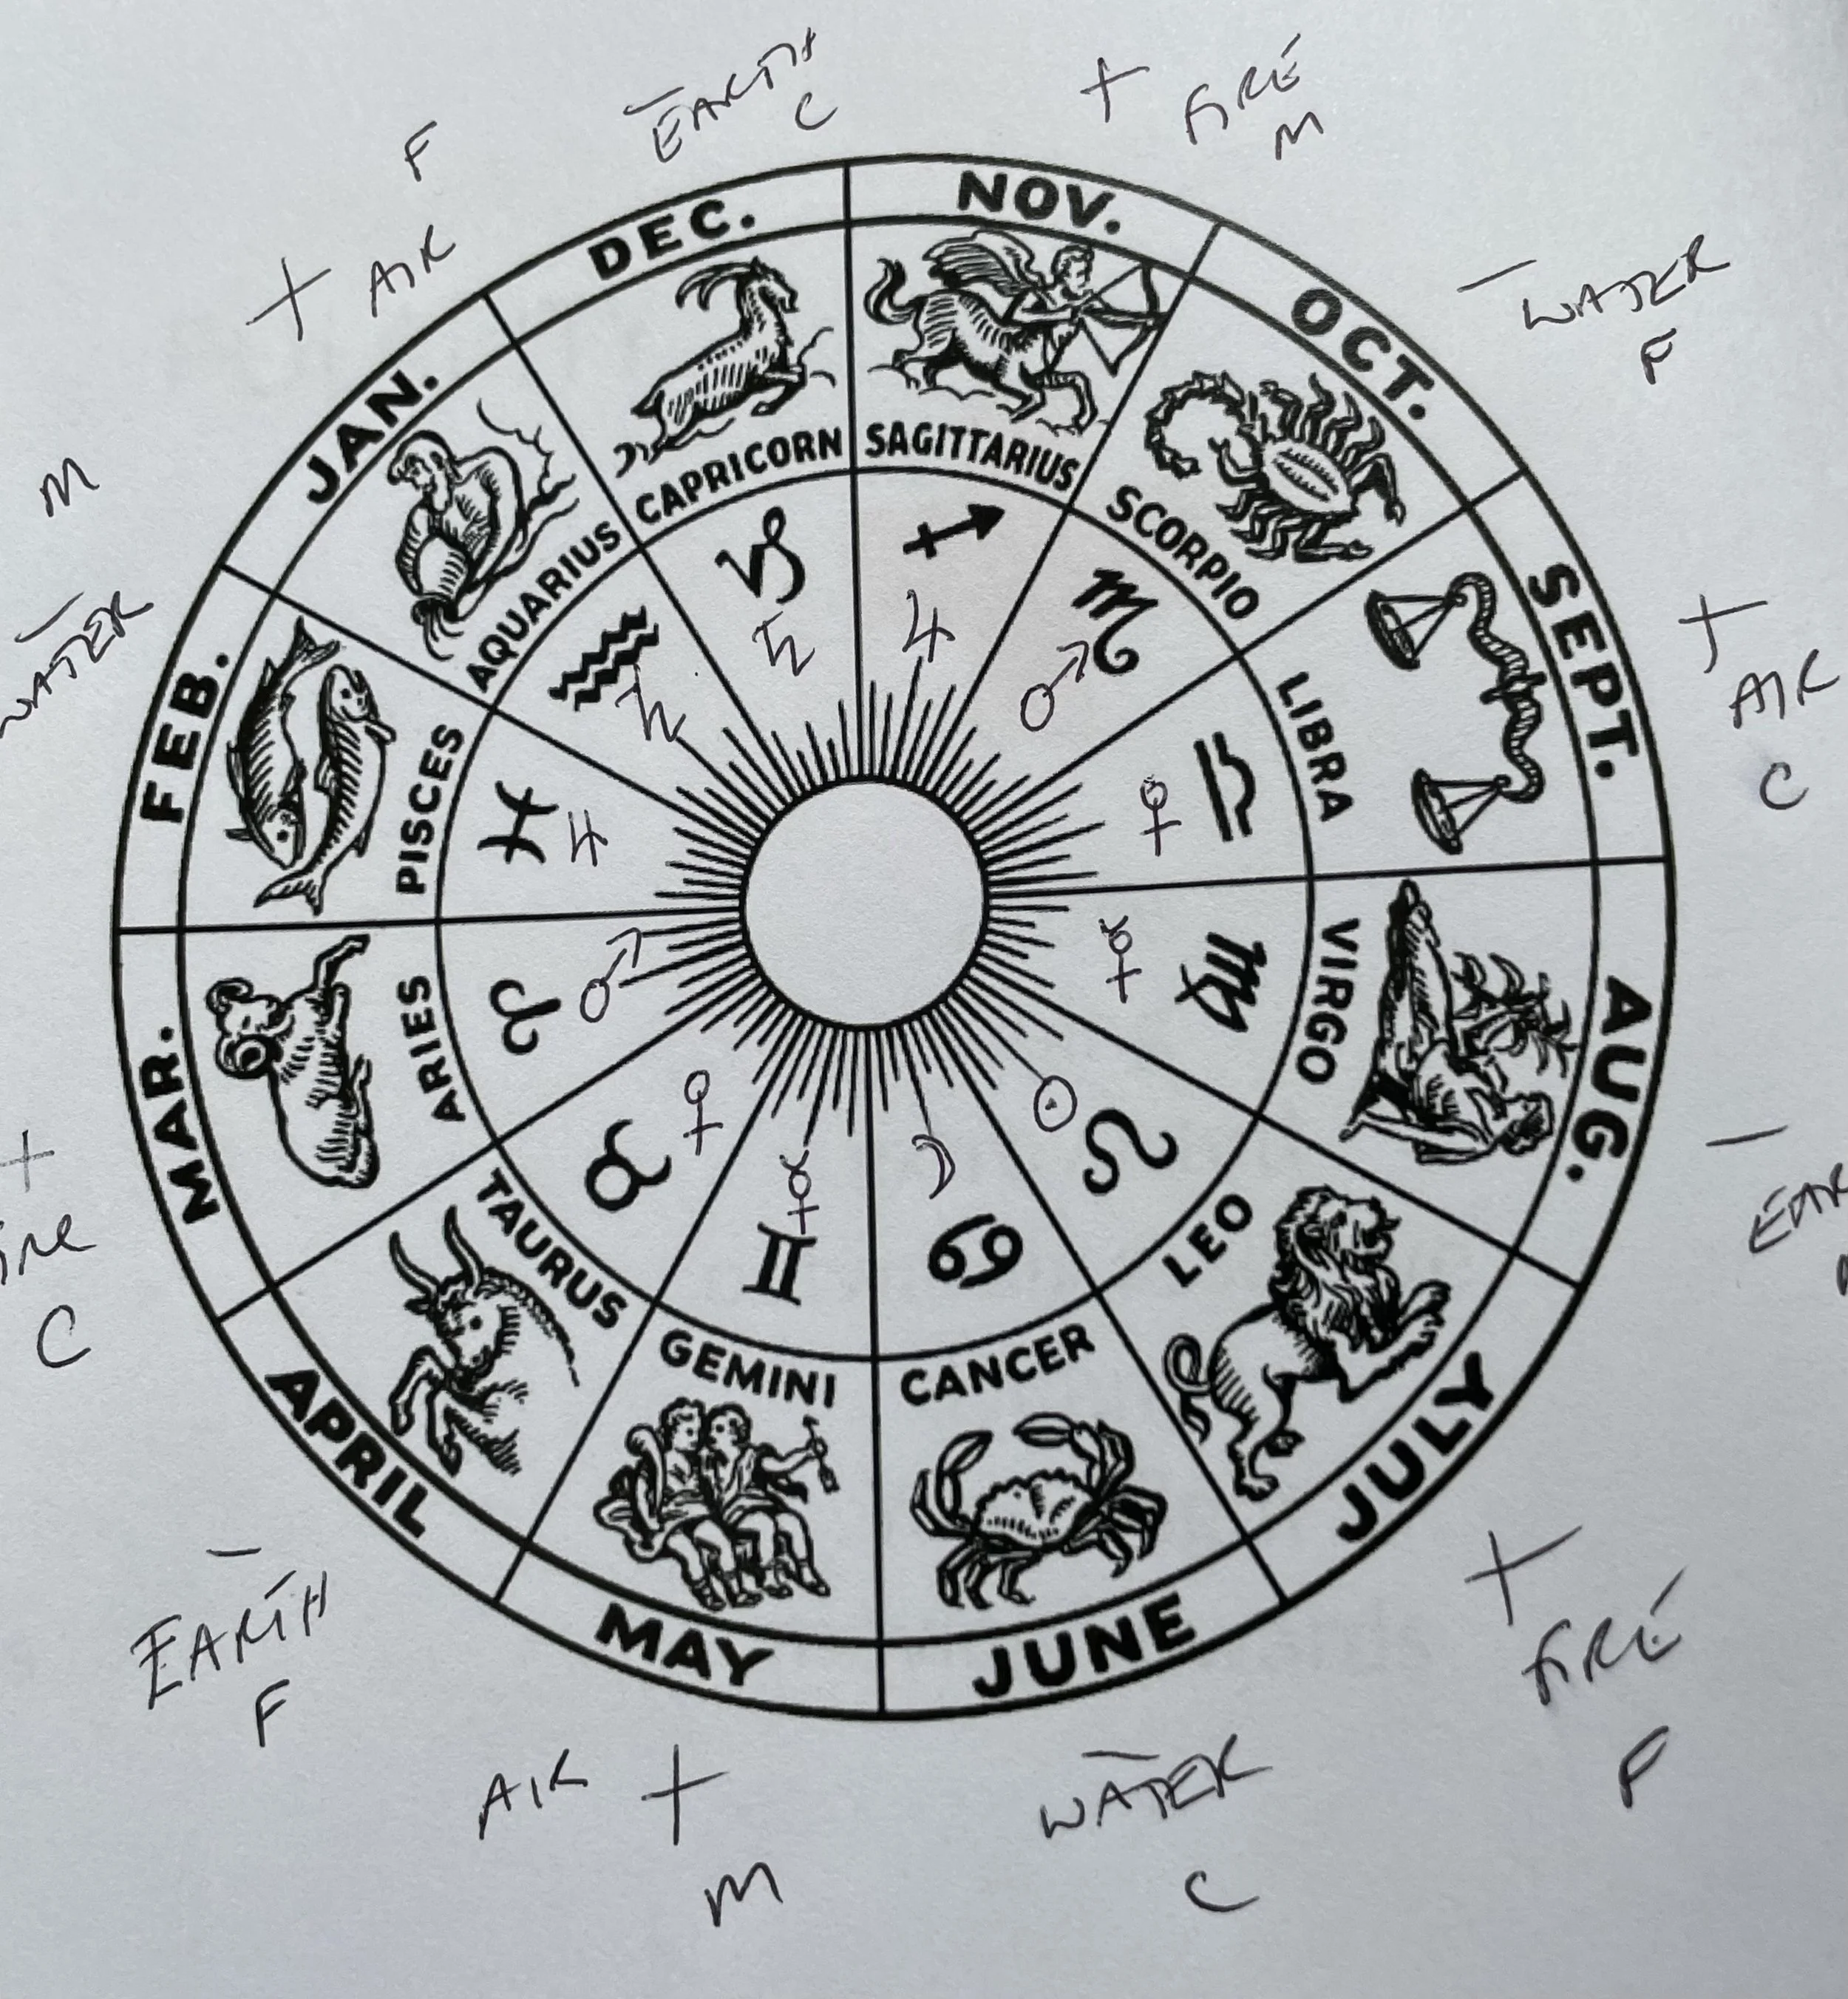 − EARTH
C
+ FIRE
M
F
+ AIR
− WATER
F
M
− WATER
+ AIR
C
+
C
−
− EARTH
F
AIR +
M
− WATER
C
+ FIRE
F
NOV.
OCT.
SEPT.
AUG.
JULY
JUNE
MAY
APRIL
MAR.
FEB.
JAN.
DEC.
SAGITTARIUS
SCORPIO
LIBRA
VIRGO
LEO
CANCER
GEMINI
TAURUS
ARIES
PISCES
AQUARIUS
CAPRICORN
♐ ♃
♏ ♂
♎ ♀
♍ ☿
♌ ☉
♋ ☽
♊ ☿
♉ ♀
♈ ♂
♓ ♃
♒ ♄
♑ ♄